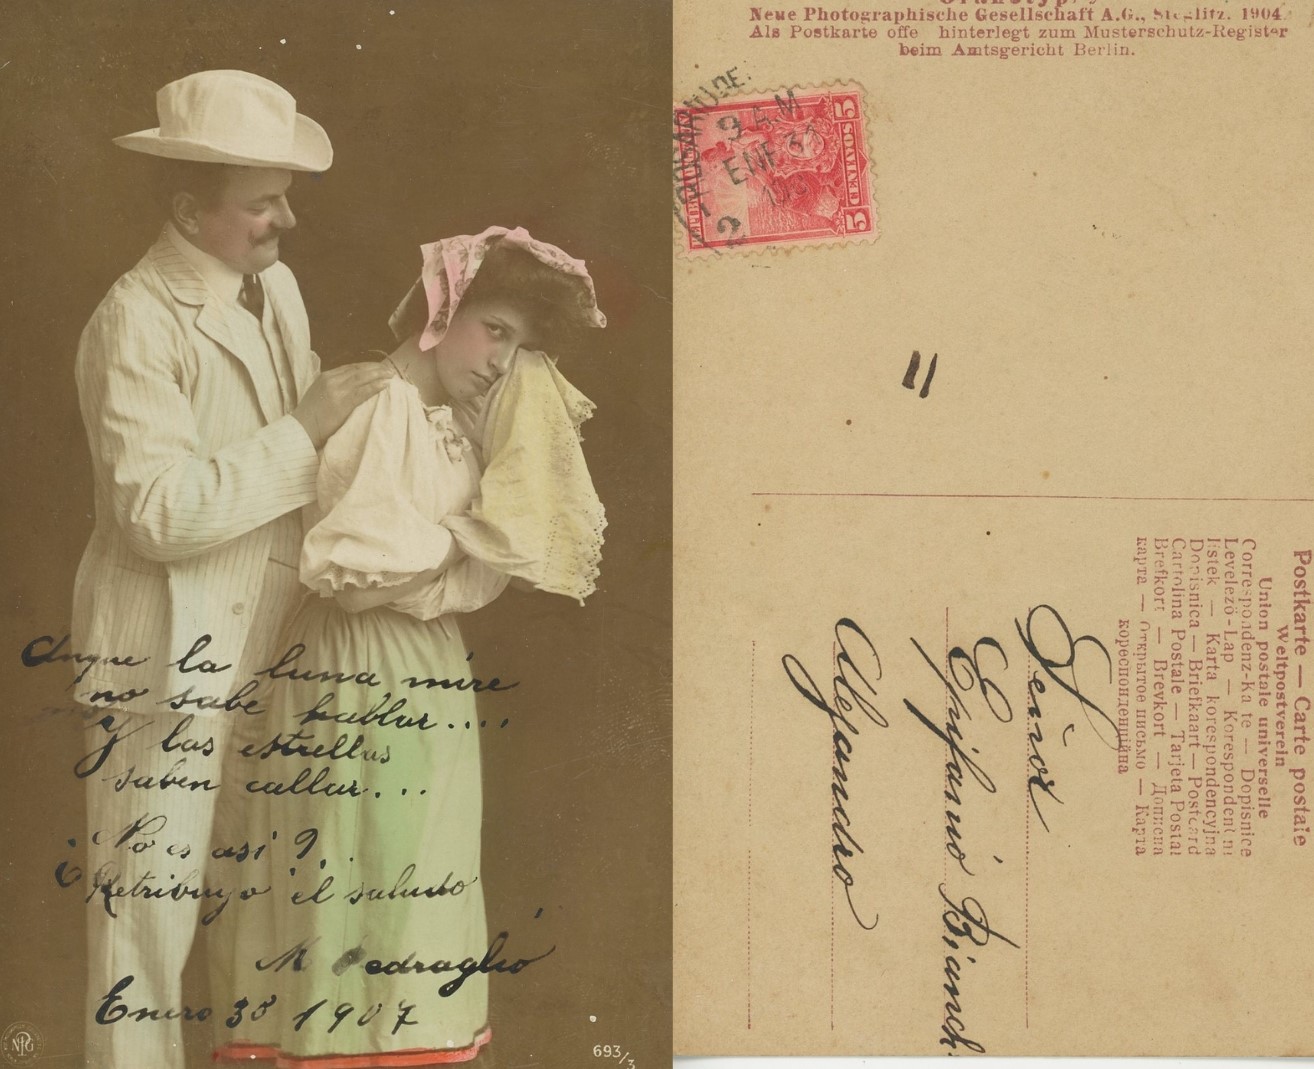 Anque la luna mire
no sabe hablar....
Y las estrellas
saben callar...
¿No es asi?
Retribuyo el saludo
M Pedraglio
Enero 30 1907
NPG
693/3
Neue Photographische Gesellschaft A.G., Steglitz. 1904
Als Postkarte offe hinterlegt zum Musterschutz-Register
beim Amtsgericht Berlin.
9 A.M
ENE 31
2
5 CENTAVOS 5
11
Postkarte — Carte postale
Weltpostverein
Union postale universelle
Correspondenz-Ka te — Dopisnice
Levelező-Lap — Korespondent ni
listek — Karta korespondencyjna
Dopisnica — Briefkaart — Postcard
Cartolina Postale — Tarjeta Postal
Brefkort — Brevkort — Дописна
карта — Открытое письмо — Карта
кореспонденційна
Señor
Epifanio Bianch
Alejandro